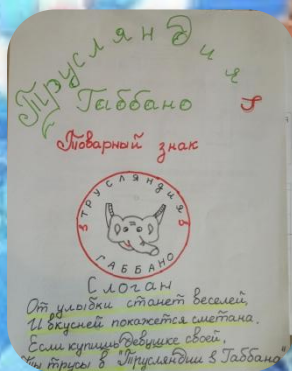 Трусляндия
&
Габбано
Товарный знак
ТРУСЛЯНДИЯ &
ГАББАНО &
Слоган
От улыбки станет веселей,
И вкусней покажется сметана.
Если купишь девушке своей,
ты трусы в "Трусляндии & Габбана"